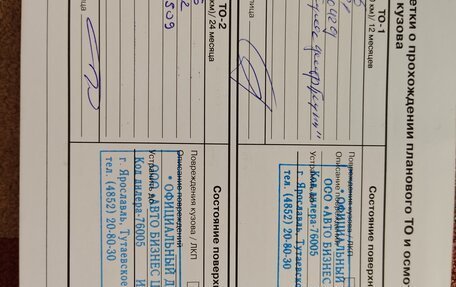 етки о прохождении планового ТО и осмот
кузова
ТО-1
км)/ 12 месяцев
Состояние поверхн
Повреждения кузова / ЛКП
Описание повреждений
Устранено
* ОФИЦИАЛЬНЫЙ
ООО «АВТО БИЗНЕС
Код дилера-76005
г. Ярославль, Тутаевск
тел. (4852) 20-80-30
ТО-2
км)/ 24 месяца
509
Состояние поверхн
Повреждения кузова / ЛКП
Описание повреждений
Устранено
* ОФИЦИАЛЬНЫЙ Д
ООО «АВТО БИЗНЕС Ц
Код дилера-76005
г. Ярославль, Тутаевское
тел. (4852) 20-80-30